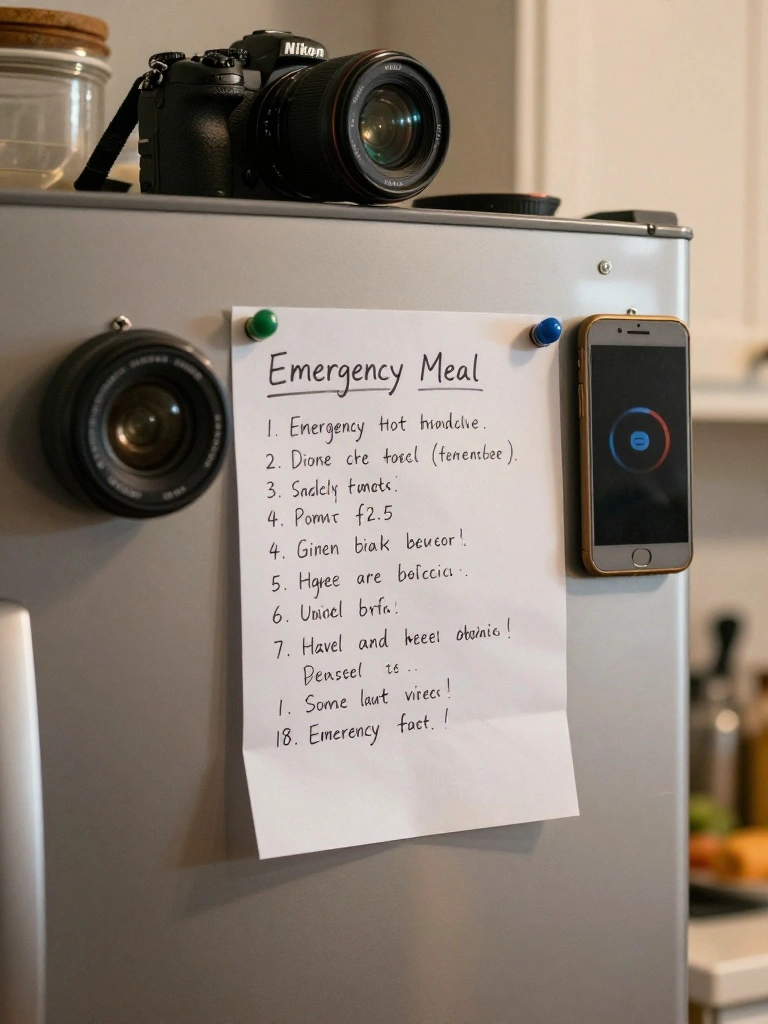 Nikon
Emergency Meal
1. Energency Hot
2. Dione cre toel (ferenebee).
3. Sadely funets:
4. Pomnr f2.5
4. Ginen biak beveor!
5. Hgree are
6. Uninel brfn!
7. Havel and heeel
Deasel te ..
1. Some laut virecs!
18. Emerency fact. !